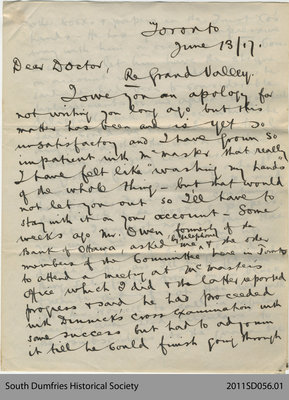 Toronto
June 13/17.
Dear Doctor,
Re Grand Valley.
I owe you an apology for
not writing you long ago but this
matter has been and is yet so
unsatisfactory and I have grown so
impatient with McMaster that really
I have felt like "washing my hands"
of the whole thing – but that would
not let you out so I'll have to
stay with it on your account – Some
weeks ago Mr. Owen formerly of the
Bank of Ottawa, asked me by telephone & the other
members of the Committee here in Toronto
to attend a meeting at McMasters
office which I did & the latter reported
progress & said he had proceeded
with Dinnick's cross examination with
some success but had to adjourn
it till he could finish going through
South Dumfries Historical Society
2011SD056.01